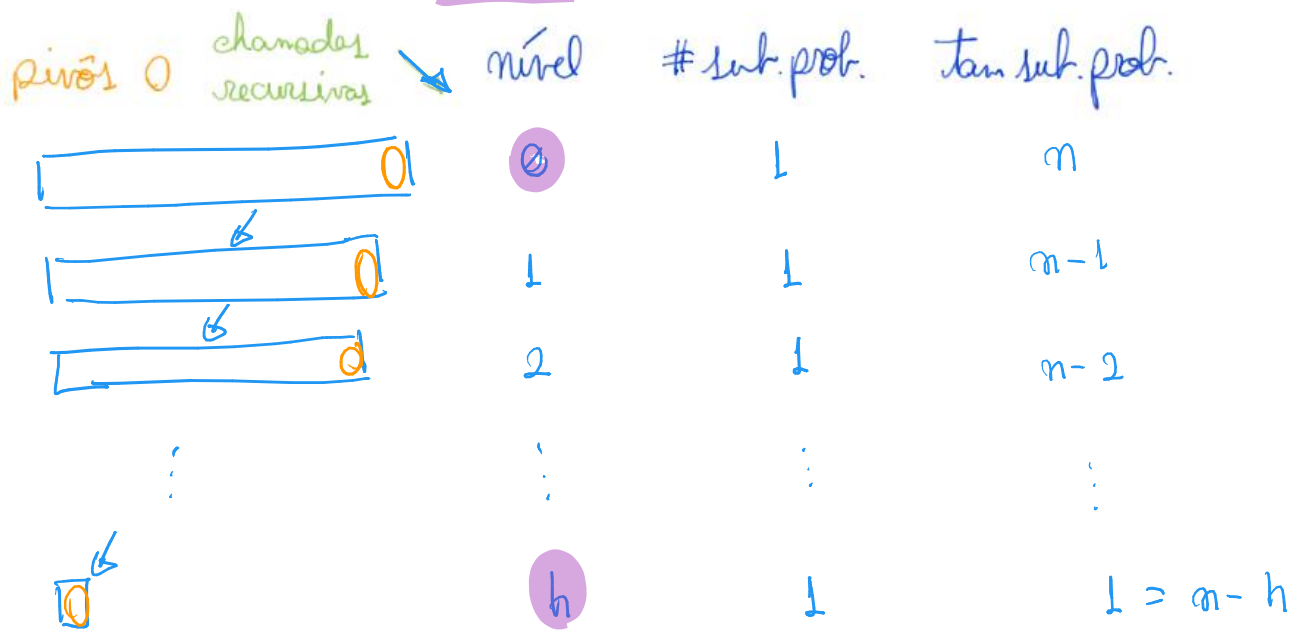 pivôs O chamadas recursivas nível # sub.prob. tam sub.prob.
0 1 n
1 1 n-1
2 1 n-2
⋮ ⋮ ⋮ ⋮
h 1 1 = n-h